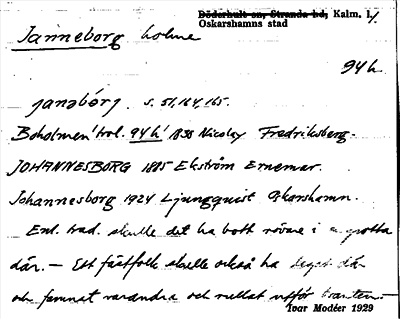 Döderhult sn, Stranda hd, Kalm. l.
Janneborg holme Oskarshamns stad
94 h
janəbórj. s. 51, 164, 165.
Boholmen' trol. 94 h' 1838 Nicolay Fredriksberg.
JOHANNESBORG 1885 Ekström Ernemar.
Johannesborg 1924 Ljungquist Oskarshamn.
Enl. trad. skulle det ha bott rövare i en grotta
där. — Ett fästfolk skulle också ha legat där
och famnat varandra och rullat utför branten.—
Ivar Modéer 1929